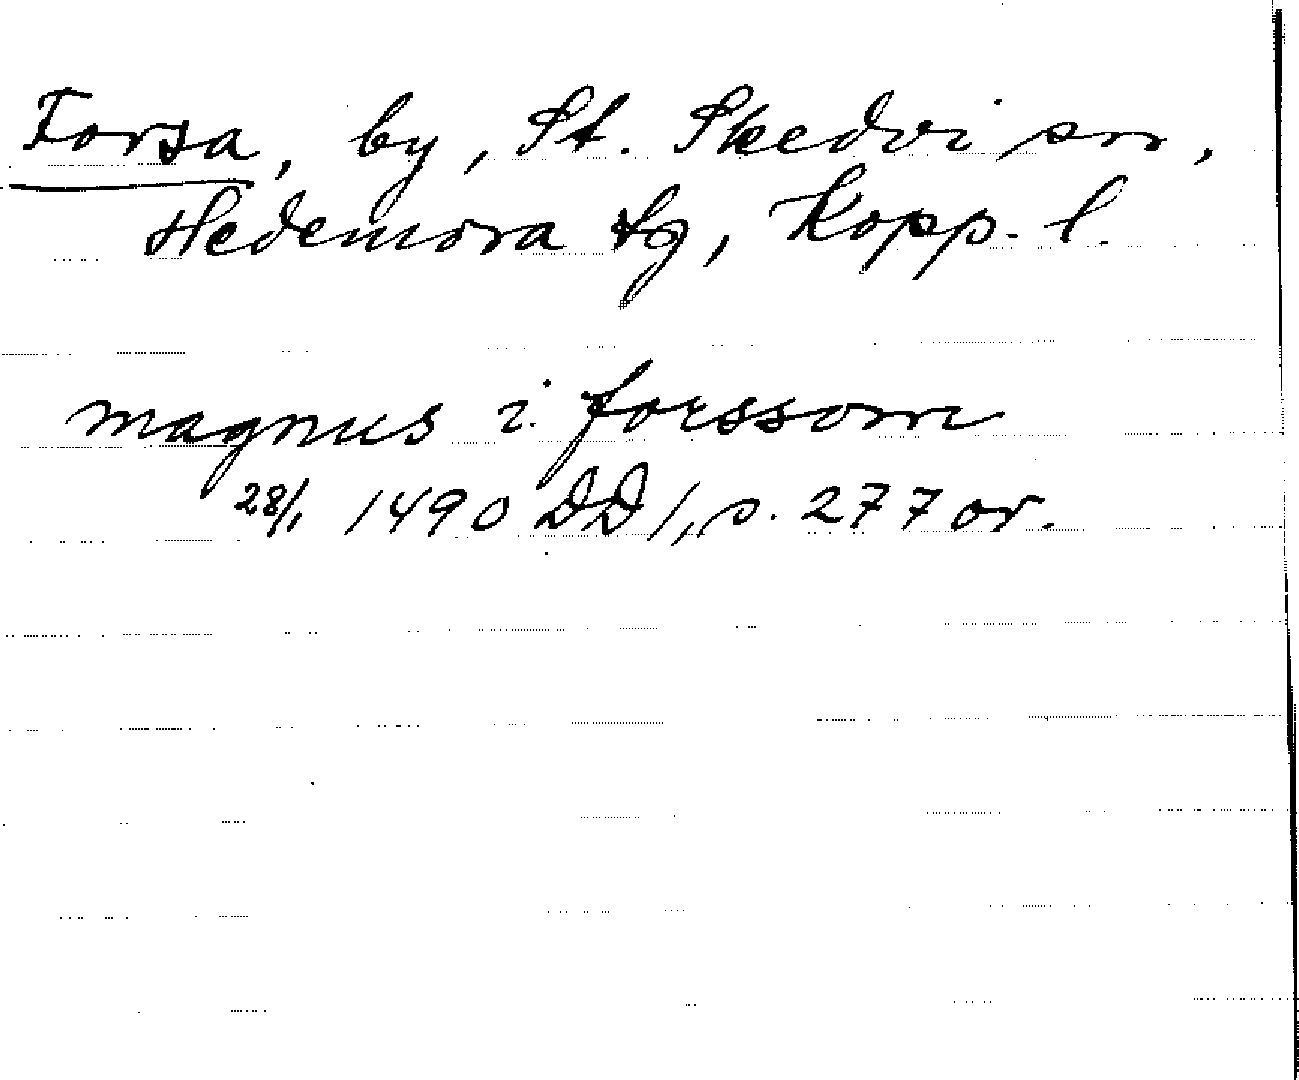 Forsa, by, St. Skedvi sn,
Hedemora tg, Kopp. l.
magnus i forssom
28/1 1490 DD 1, s. 277 or.